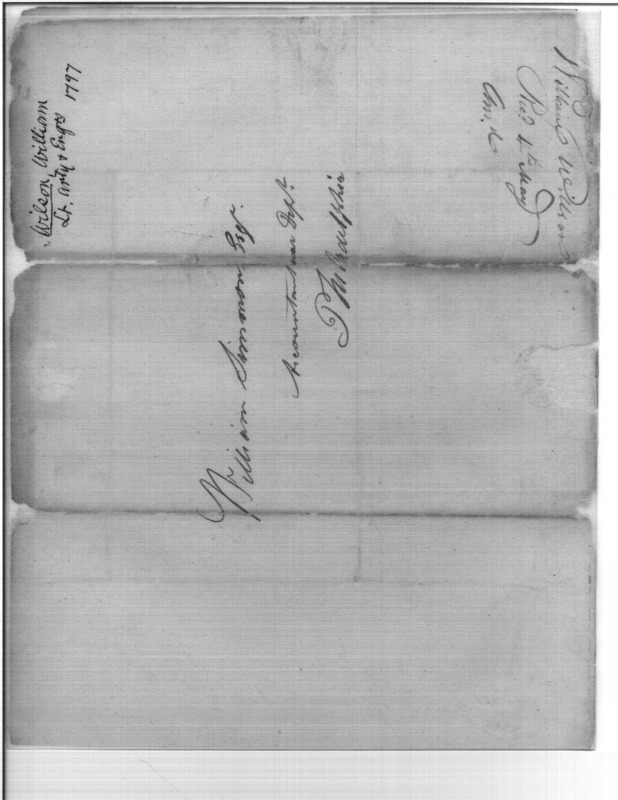 Wilson, William
Lt. Arty & Engrs 1797
William Simmons Esqr.
Accountant war Dept.
Philadelphia
William Wilson
Recd 4th May